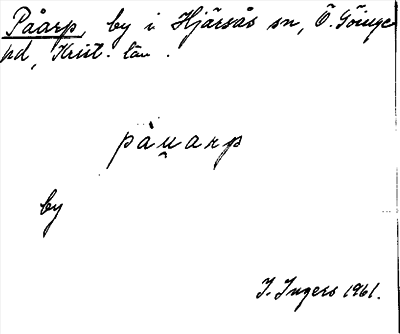 Påarp, by i Hjärsås sn, Ö. Göinge
hd, Krist. län.
pàu̯arp
by
I. Ingers 1961.